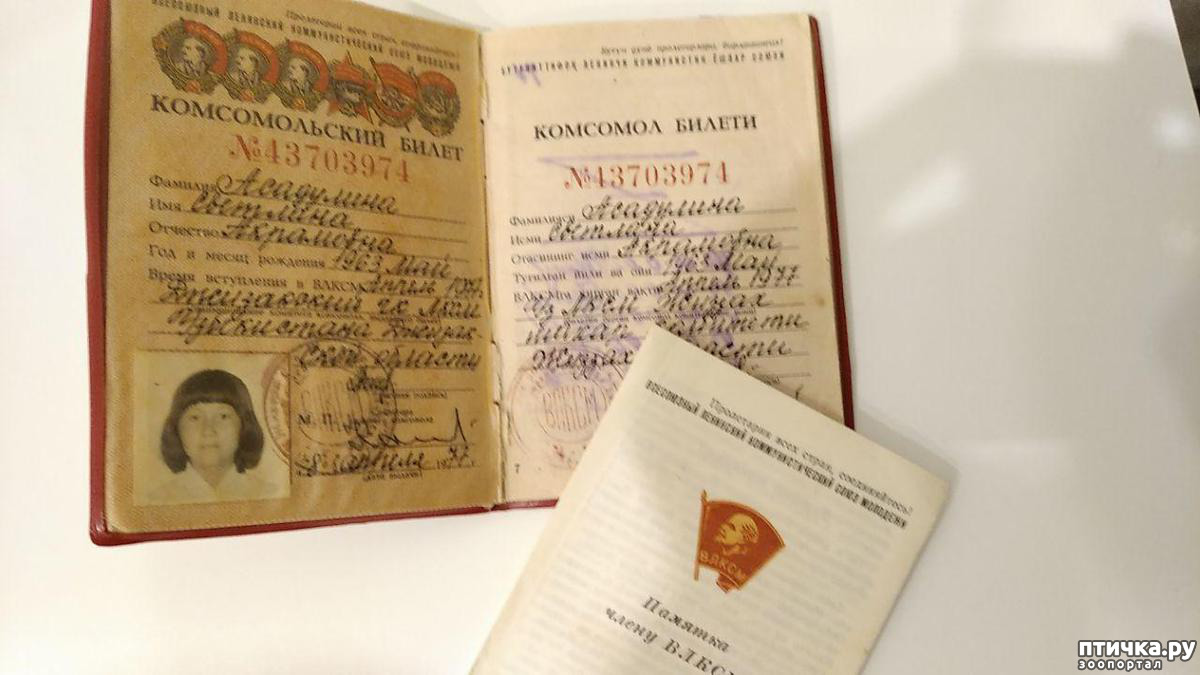 Пролетарии всех стран, соединяйтесь!
ВСЕСОЮЗНЫЙ ЛЕНИНСКИЙ КОММУНИСТИЧЕСКИЙ СОЮЗ МОЛОДЕЖИ
КОМСОМОЛЬСКИЙ БИЛЕТ
№43703974
Фамилия Асадулина
Имя Светлана
Отчество Акрамовна
Год и месяц рождения 1963 май
Время вступления в ВЛКСМ Апрель 1977
Джизакский ГК ЛКСМ
Узбекистана Джизак
ской области
М. П.
8 апреля 1977 г.
Бутун дунё пролетарлари, бирлашингиз!
БУТУНИТТИФОҚ ЛЕНИНЧИ КОММУНИСТИК ЁШЛАР СОЮЗИ
КОМСОМОЛ БИЛЕТИ
№43703974
Фамилияси Асадулина
Исми Светлана
Отасининг исми Акрамовна
Туғилган йили ва ойи 1963 май
ВЛКСМга кирган вақти Апрель 1977
Уз ЛКСМ Жиззах
шахар комитети
Жиззах
ВЛКСМ
7
Пролетарии всех стран, соединяйтесь!
ВСЕСОЮЗНЫЙ ЛЕНИНСКИЙ КОММУНИСТИЧЕСКИЙ СОЮЗ МОЛОДЕЖИ
ВЛКСМ
Памятка
члену ВЛКСМ
птичка.ру
зоопортал